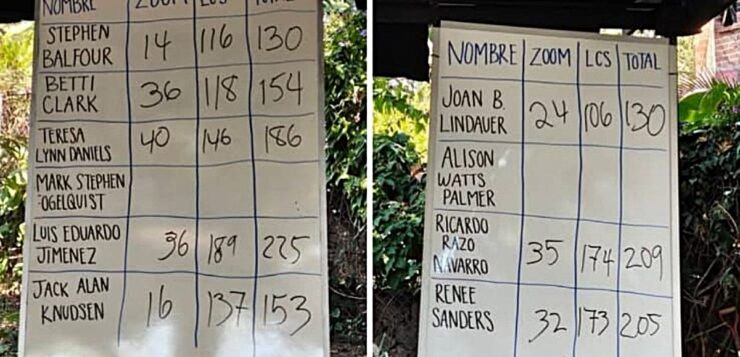 NOMBRE ZOOM LCS TOTAL
STEPHEN
BALFOUR 14 116 130
BETTI
CLARK 36 118 154
TERESA
LYNN DANIELS 40 146 186
MARK STEPHEN
FOGELQUIST
LUIS EDUARDO
JIMENEZ 36 189 225
JACK ALAN
KNUDSEN 16 137 153
NOMBRE ZOOM LCS TOTAL
JOAN B.
LINDAUER 24 106 130
ALISON
WATTS
PALMER
RICARDO
RAZO
NAVARRO 35 174 209
RENEE
SANDERS 32 173 205